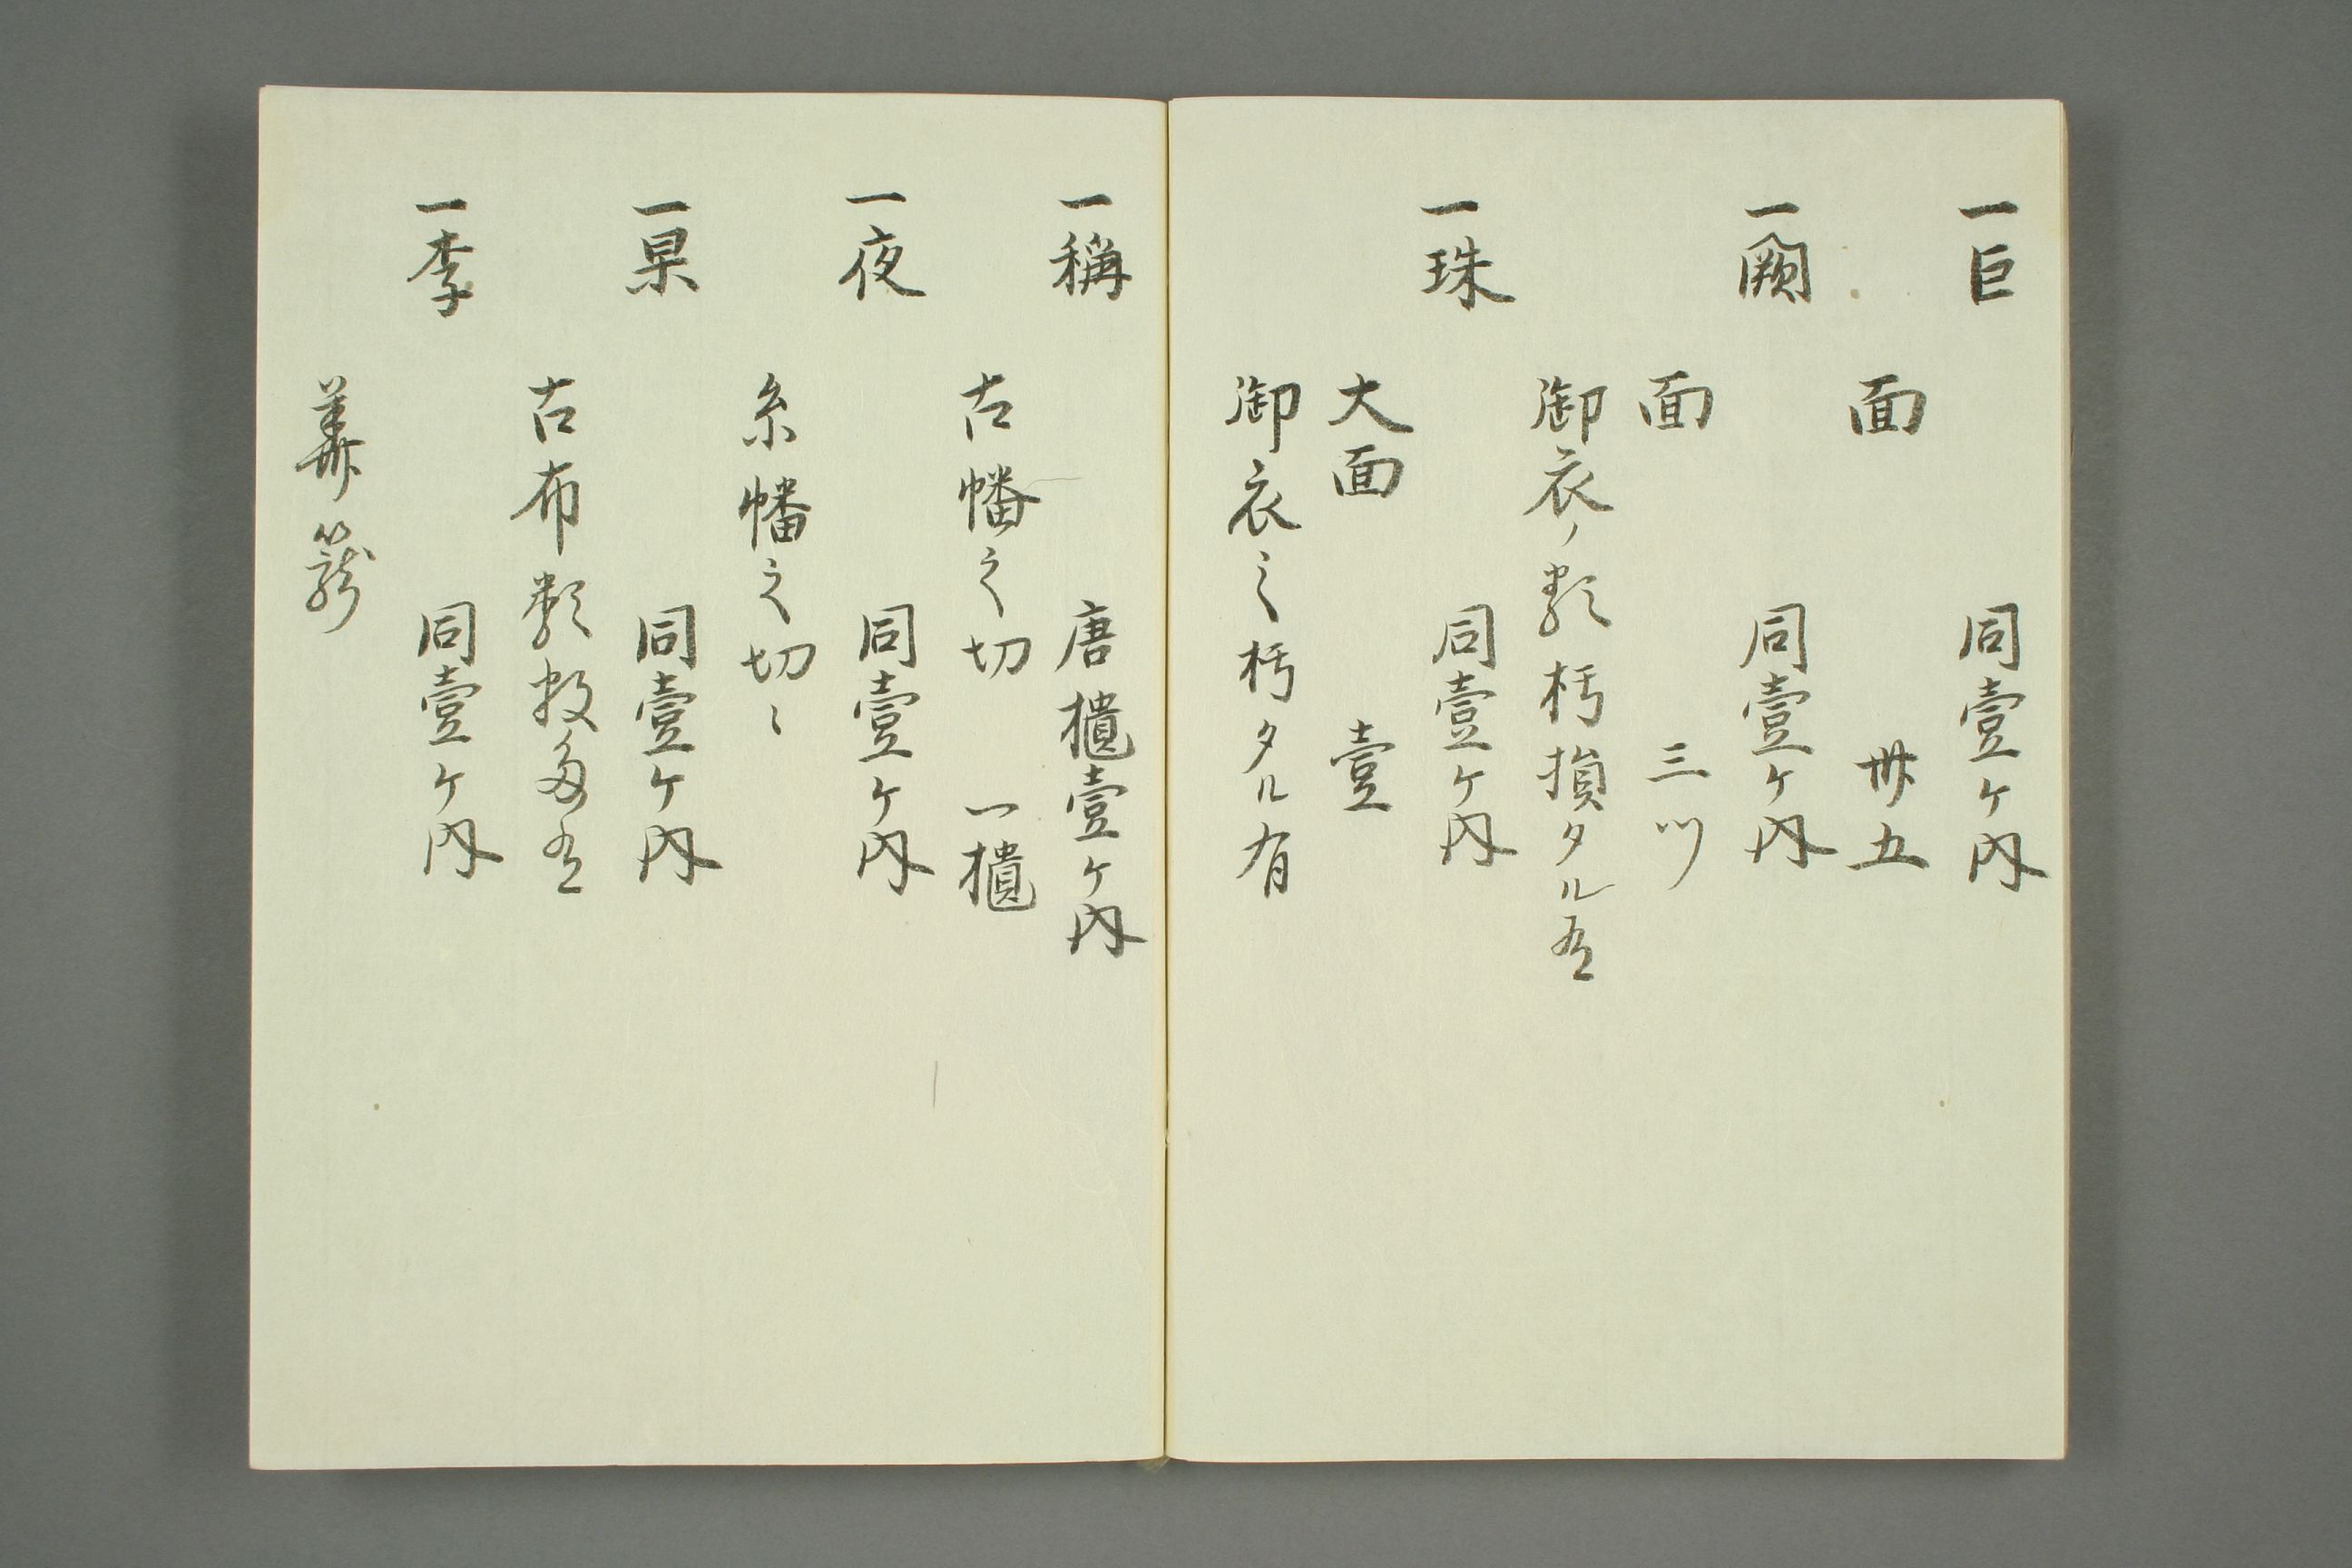 一巨 同壹ケ内
面 卅五
一闕 同壹ケ内
面 三ツ
御衣ノ類朽損タル有
一珠 同壹ケ内
大面 壹
御衣之朽タル有
一稱 唐櫃壹ケ内
古幡之切 一櫃
一夜 同壹ケ内
糸幡之切〻
一果 同壹ケ内
古布類数多有
一李 同壹ケ内
華籠